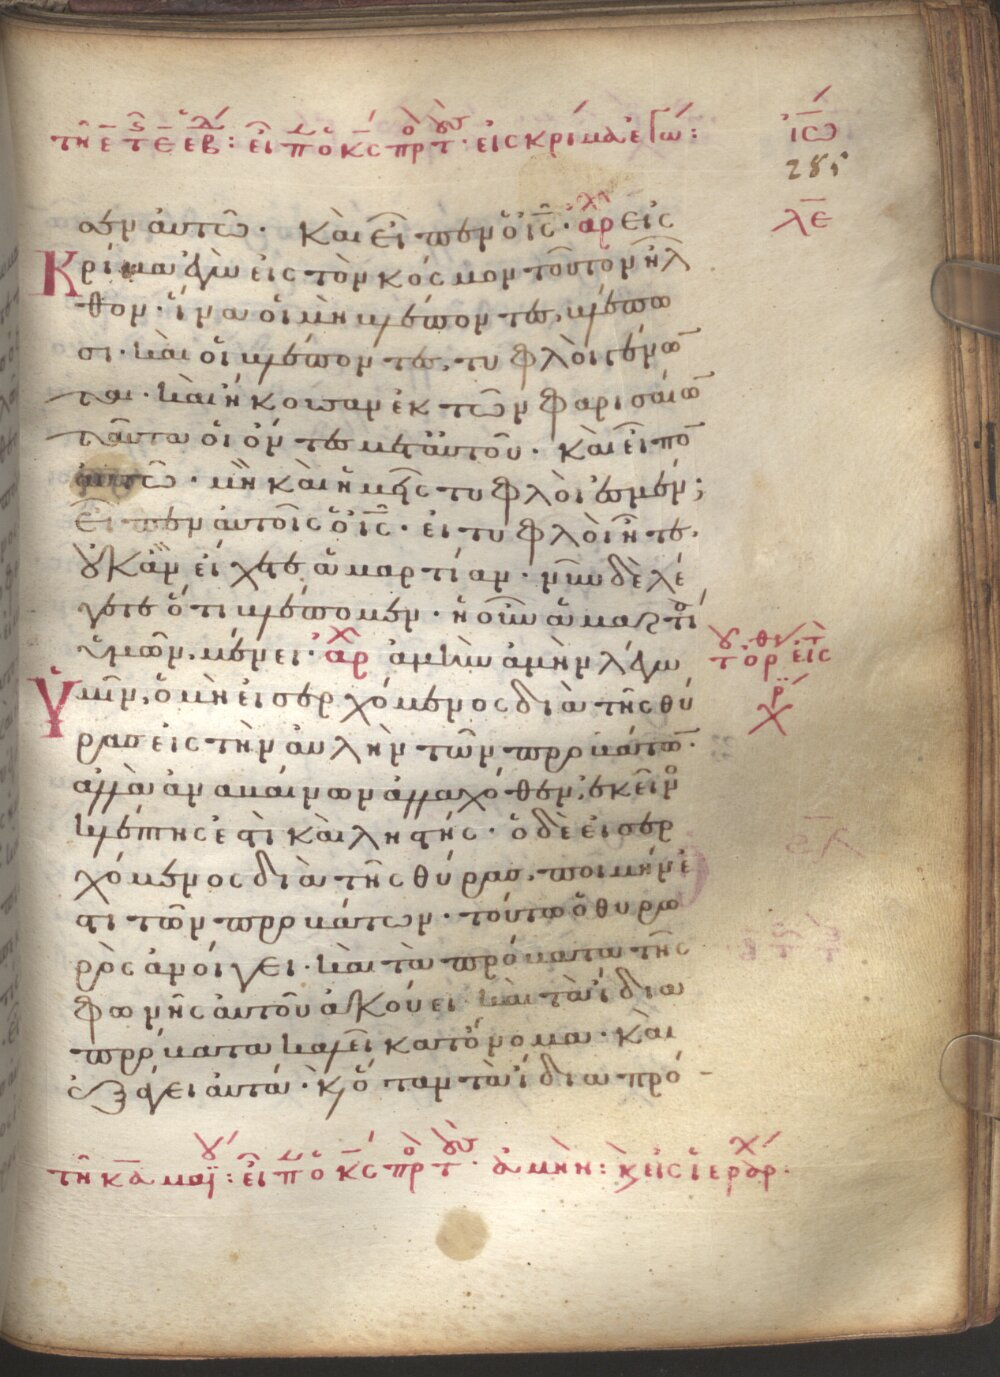 τῆ ε τ ε εβ: εἶπ ὁ κς πρ τ· εἰς κρίμα ἐγώ:
ἰω
285
λε
σεν αὐτῶ· καὶ εἶπεν ὁ ις· ἀρ εἰς
κρίμα ἐγὼ εἰς τὸν κόσμον τοῦτον ἦλ
θον· ἵνα οἱ μὴ βλέποντες, βλέπω
σι· καὶ οἱ βλέποντες, τυφλοὶ γένων
ται· καὶ ἤκουσαν ἐκ τῶν φαρισαίων
ταῦτα οἱ ὄντες μετ' αὐτοῦ· καὶ εἶπον
αὐτῶ· μὴ καὶ ἡμεῖς τυφλοὶ ἐσμέν;
εἶπεν αὐτοῖς ὁ ις· εἰ τυφλοὶ ἦτε,
οὐκ ἂν εἴχετε ἁμαρτίαν· νῦν δὲ λέ
γετε ὅτι βλέπομεν· ἡ οὖν ἁμαρτία
ὑμῶν, μένει· ἀρχ ἀμὴν ἀμὴν λέγω
ὑμῖν, ὁ μὴ εἰσερχόμενος διὰ τῆς θύ
ρας εἰς τὴν αὐλὴν τῶν προβάτων·
ἀλλὰ ἀναβαίνων ἀλλαχόθεν, ἐκεῖνος
κλέπτης ἐστὶ καὶ ληστής· ὁ δὲ εἰσερ
χόμενος διὰ τῆς θύρας, ποιμήν ἐ
στι τῶν προβάτων· τούτω ὁ θυρω
ρὸς ἀνοίγει· καὶ τὰ πρόβατα τῆς
φωνῆς αὐτοῦ ἀκούει· καὶ τὰ ἴδια
πρόβατα καλεῖ κατ' ὄνομα· καὶ
ἐξάγει αὐτά· κ ὅταν τὰ ἴδια πρό
τῆ κα μαϊ: εἶπ ὁ κς πρ τ· ἀμήν: κ εἰς ἱεράρχ·